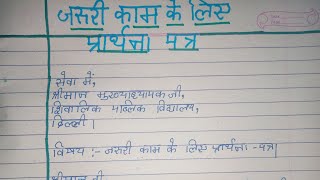 जरुरी काम के लिए
प्रार्थना पत्र
सेवा में,
श्रीमान मुख्याध्यापक जी,
शिवालिक पब्लिक विद्यालय,
दिल्ली।
विषय :- जरुरी काम के लिए प्रार्थना-पत्र।
श्रीमान जी